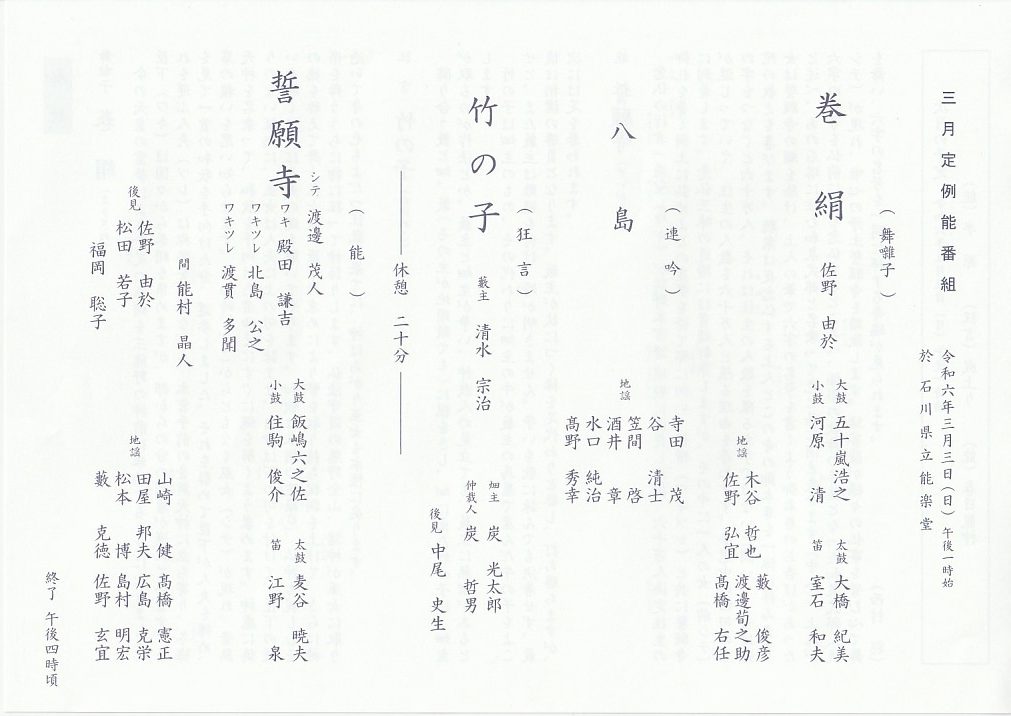 三月定例能番組
令和六年三月三日（日）午後一時始
於 石川県立能楽堂
（舞囃子）
巻絹
佐野 由於
大鼓 五十嵐浩之
小鼓 河原 清
太鼓 大橋 紀美
笛 室石 和夫
地謡
木谷 哲也
佐野 弘宜
藪 俊彦
渡邊荀之助
髙橋 右任
（連吟）
八島
地謡
寺田 茂
谷 清士
笠間 啓
酒井 章
水口 純治
髙野 秀幸
（狂言）
竹の子
藪主 清水 宗治
畑主 炭 光太郎
仲裁人 炭 哲男
後見 中尾 史生
休憩 二十分
（能）
誓願寺
シテ 渡邊 茂人
ワキ 殿田 謙吉
ワキツレ 北島 公之
ワキツレ 渡貫 多聞
間 能村 晶人
大鼓 飯嶋六之佐
小鼓 住駒 俊介
太鼓 麦谷 暁夫
笛 江野 泉
後見
佐野 由於
松田 若子
福岡 聡子
地謡
山崎 健
田屋 邦夫
松本 博
藪 克徳
髙橋 憲正
広島 克栄
島村 明宏
佐野 玄宜
終了 午後四時頃